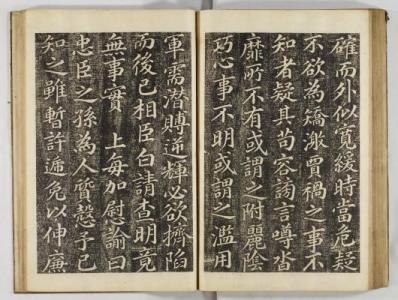 確而外似寬緩時當危疑
不欲為矯激賈禍之事不
知者疑其苟容謗言噂沓
靡所不有或謂之附麗陰
巧心事不明或謂之濫用
軍需潜賻逆輝必欲擠陷
而後已相臣白請查明竟
無事實 上每加慰諭曰
忠臣之孫為人寳慤予已
知之雖暫許遞免以伸廉